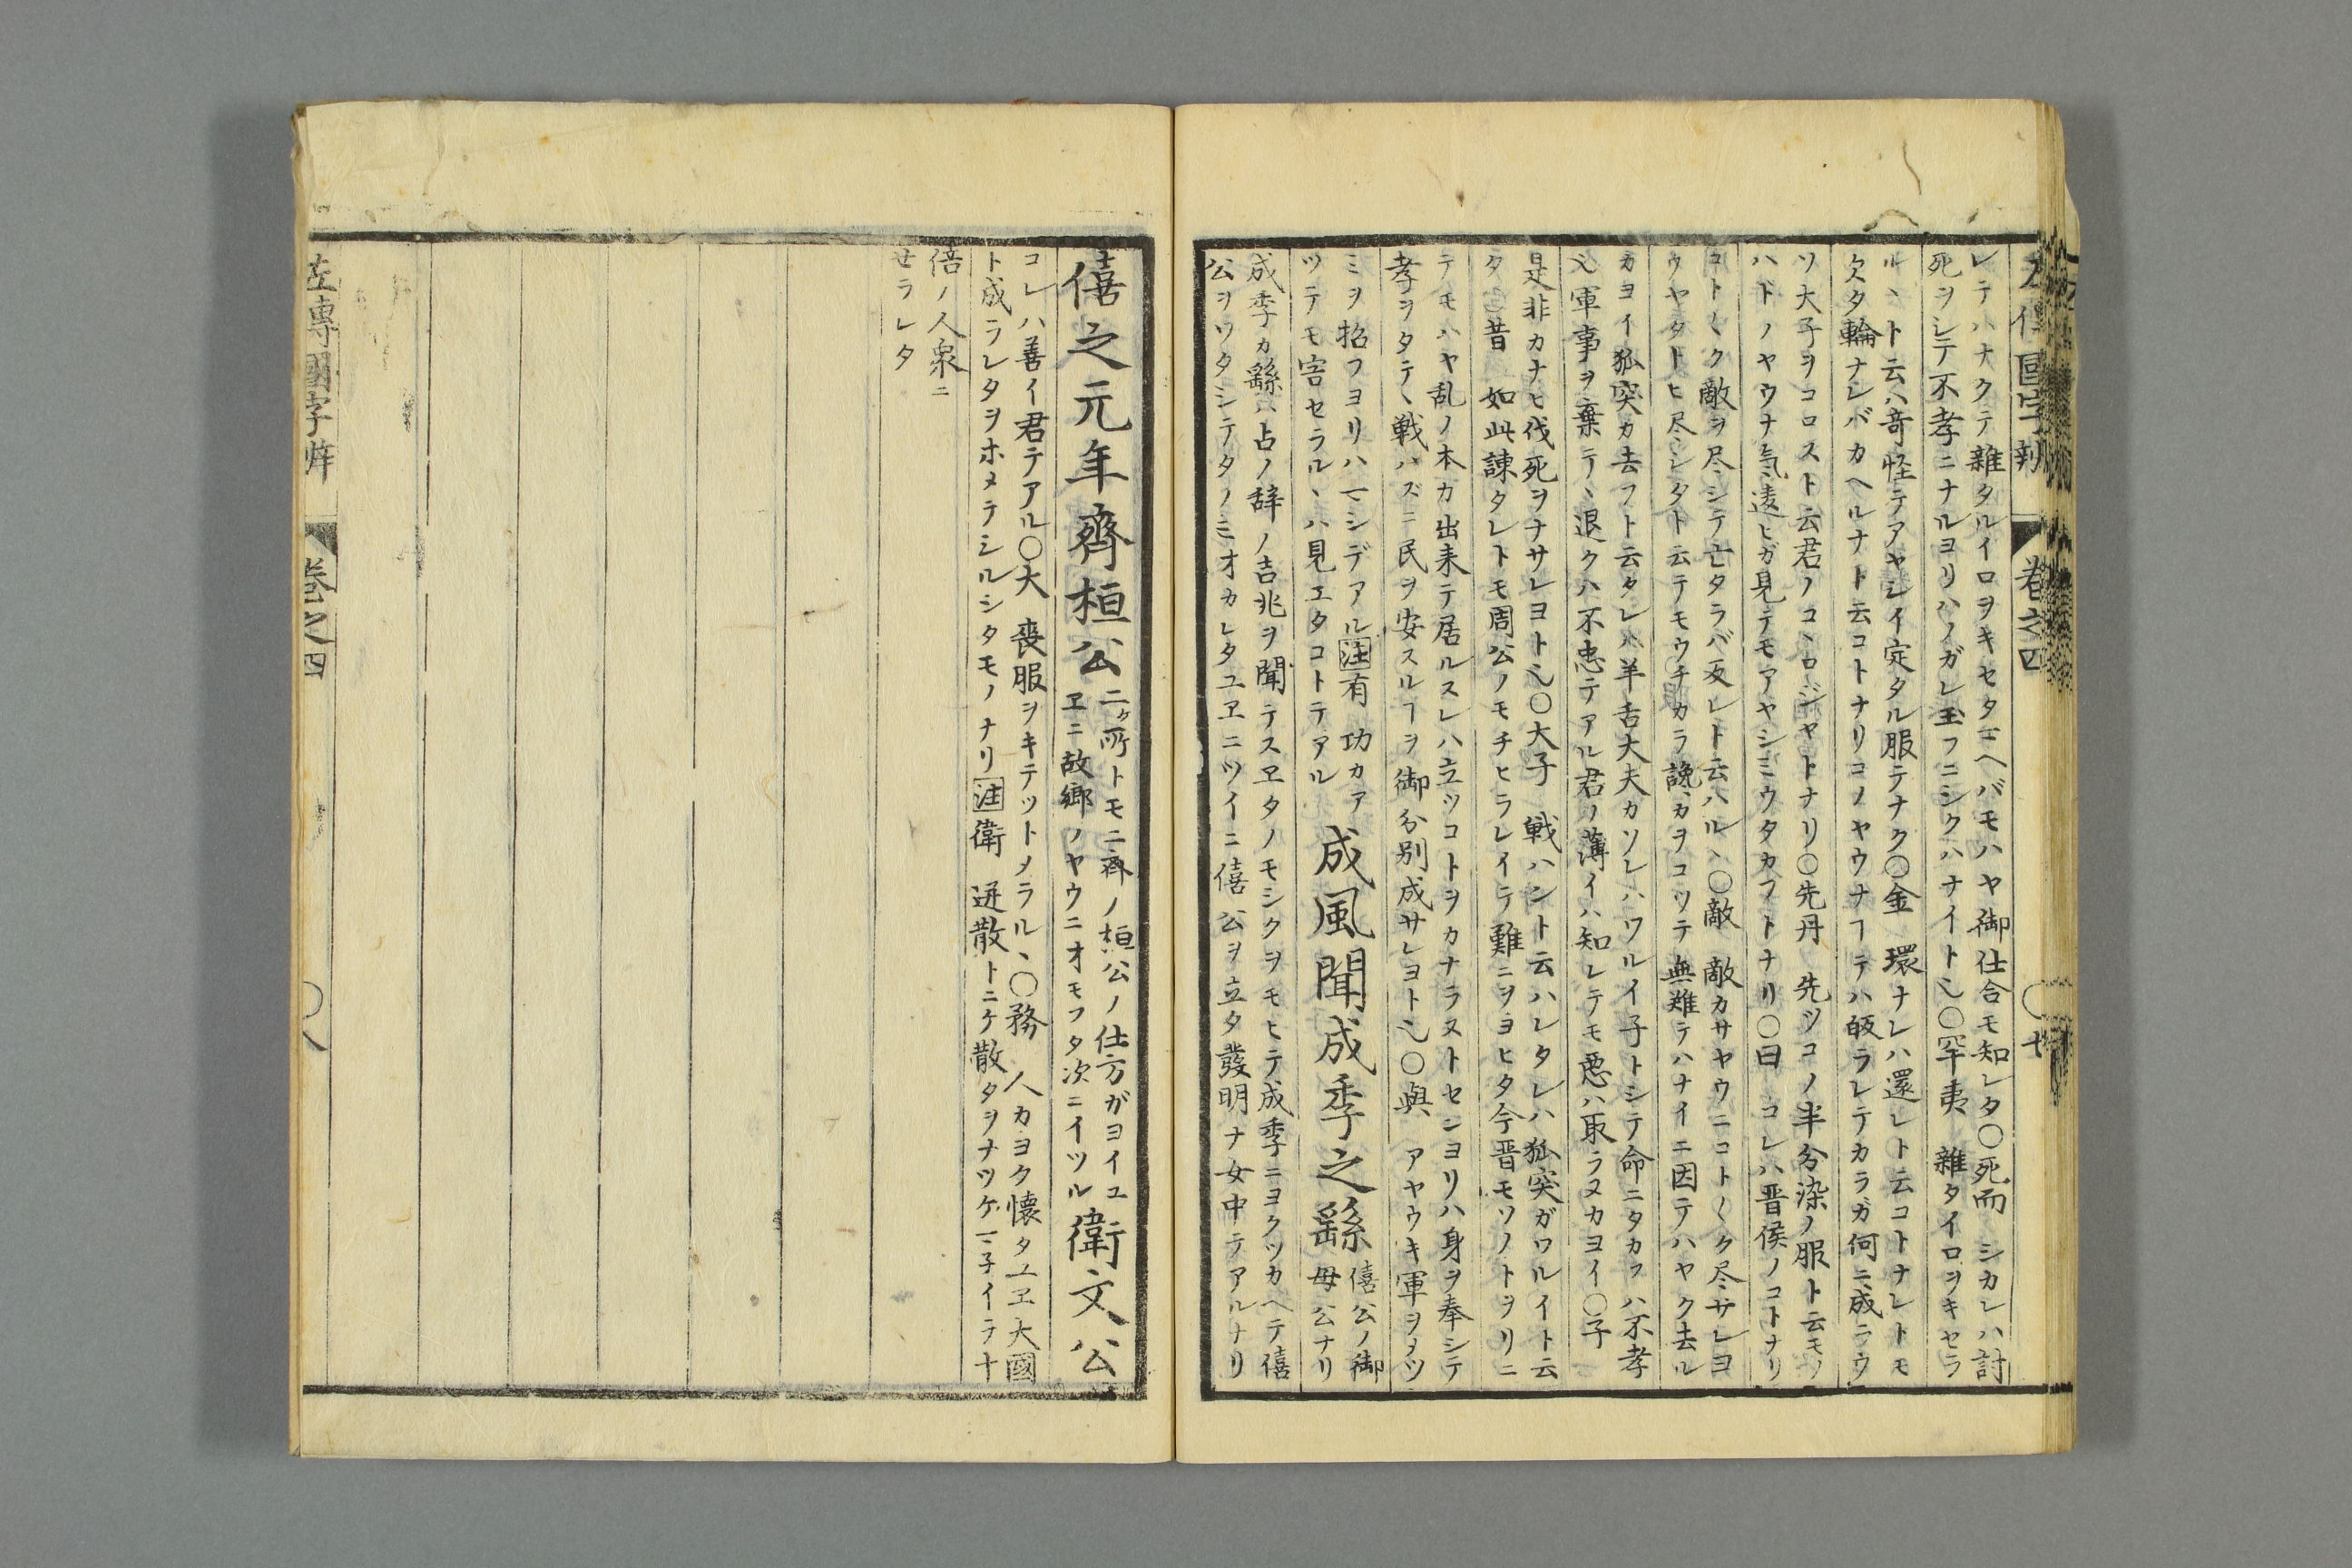 左傳國字辨 卷之四
レテハナクテ雜タルイロヲキセタユヘバモハヤ御仕合モ知レタ〇死而 シカレハ討
死ヲシテ不孝ニナルヨリハノガレ玉フニシクハナイト也〇罕夷 雜タイロヲキセラ
ルヽト云ハ竒怪テアヤシイ定タル服テナク〇金 環ナレハ還レト云コトナレトモ
欠タ輪ナレバカヘルナト云コトナリコノヤウナヿテハ皈ラレテカラガ何ニ成ニウ
ソ大子ヲコロスト云君ノコヽロジヤトナリ〇先丹 先ツコノ半分染ノ服ト云モノ
ハドノヤウナ気逺ヒガ見テモアヤシミウタカフトナリ〇曰 コレハ晋侯ノコトナリ
コト〱ク敵ヲ尽シテ亡タラバ反レト云ハルヽ〇敵 敵カサヤウニコト〱ク尽サレヨ
ウヤタトヒ尽シタト云テモウチカラ讒カヲコツテ無難テハナイニ因テハヤク去ル
カヨイ狐突カ去フト云タレハ羊舌大夫カソレハワルイ子トシテ命ニタカフハ不孝
也軍事ヲ棄テヽ退クハ不忠テアル君ノ薄イハ知レテモ悪ハ取ラヌカヨイ〇子
是非カナヒ伐死ヲナサレヨト也〇大子 戦ハント云ハレタレハ狐突ガワルイト云
タ〇昔 如此諌タレトモ周公ノモチヒラレイテ難ニヲヨヒタ今晋モソノトヲリニ
テモハヤ乱ノ本カ出来テ居ルスレハ立ツコトヲカナラストセンヨリハ身ヲ奉シテ
孝ヲタテヽ戦ハズニ民ヲ安スルヿヲ御分別成サレヨト也〇與 アヤウキ軍ヲメツ
ミヲ招フヨリハマシデアル注有 功カア
ツテモ害セラルヽハ見エタコトテアル
成風聞成季之繇
僖公ノ御
母公ナリ
成季カ繇ハ占ノ辞ノ吉兆ヲ聞テスヱタノモシクヲモヒテ成季ニヨクツカヘテ僖
公ヲワタシテタノミオカレタユヱニツイニ僖公ヲ立タ發明ナ女中テアルナリ
僖之元年齊桓公
二ケ所トモニ斉ノ桓公ノ仕方ガヨイユ
ヱニ故郷ノヤウニオモフタ次ニイツル
衛文公
コレハ善イ君テアル〇大 喪服ヲキテツトメラルヽ〇務 人カヨク懐タユヱ大國
ト成ラレタヲホメテシルシタモノナリ注衛 迸散トニケ散タヲナツケ
倍ノ人衆ニ
せラレタ
左傳國字辨 卷之四 〇八